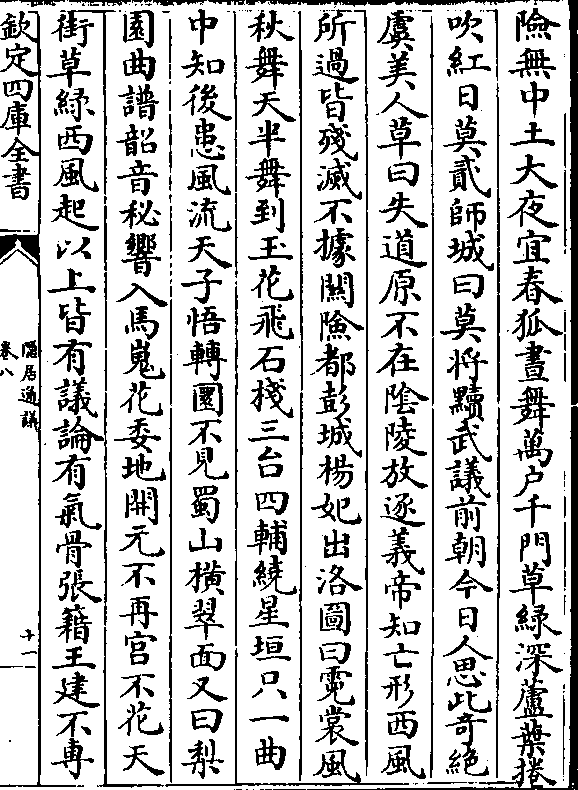 險無中土大夜宜春狐晝舞萬户千門草綠深蘆葉捲
吹紅日莫貳師城曰莫將黷武議前朝今日人思此奇絶
虞美人草曰失道原不在隂陵放逐義帝知亡形西風
所過皆殘滅不據關險都彭城楊妃出洛圖曰霓裳風
秋舞天半舞到玉花飛石棧三台四輔繞星垣只一曲
中知後患風流天子悟轉圜不見蜀山橫翠面又曰梨
園曲譜韶音秘響入馬嵬花委地開元不再宫不花天
街草綠西風起以上皆有議論有氣骨張籍王建不專
欽定四庫全書
隱居通議
卷八
十一